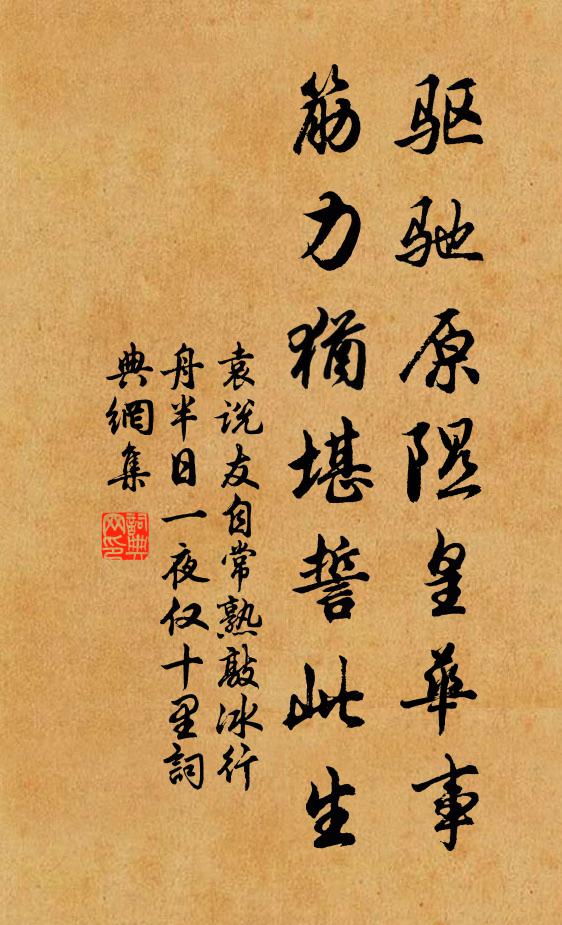 驱驰原隰皇华事
筋力犹堪誓此生
袁说友自常熟敲冰行
舟半日一夜仅十里詞
典網集
詞典網印